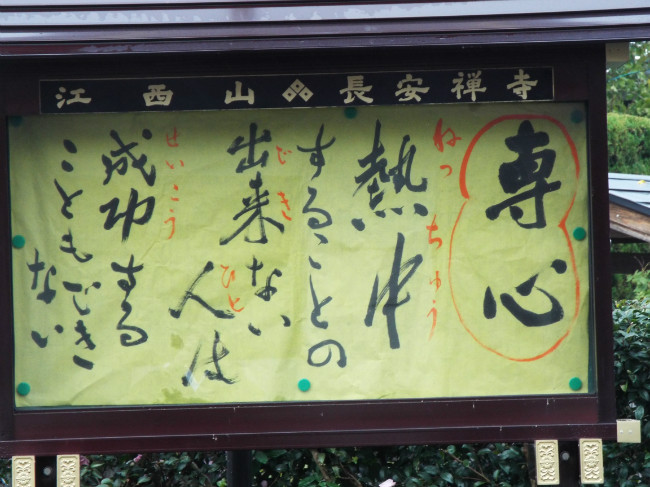 江西山 長安禅寺
専心
ねっちゅう
熱中
することの
でき
出来ない
ひと
人は
せいこう
成功する
こともでき
ない